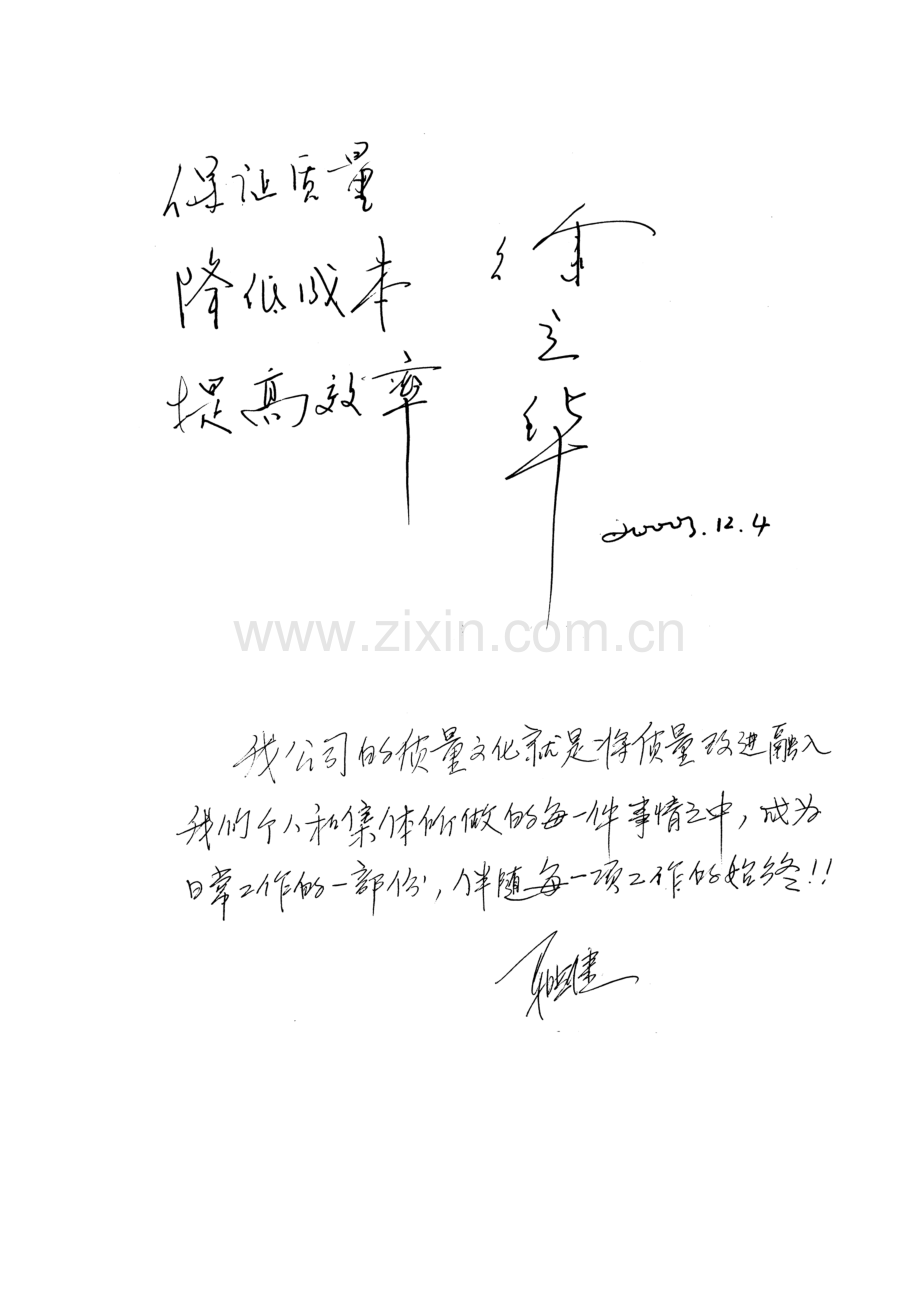 保证质量
降低成本
提高效率
徐立华
2003.12.4
www.zixin.com.cn
我公司的质量文化就是将质量改进融入
我们个人和集体所做的每一件事情之中，成为
日常工作的一部份，伴随每一项工作的始终!!